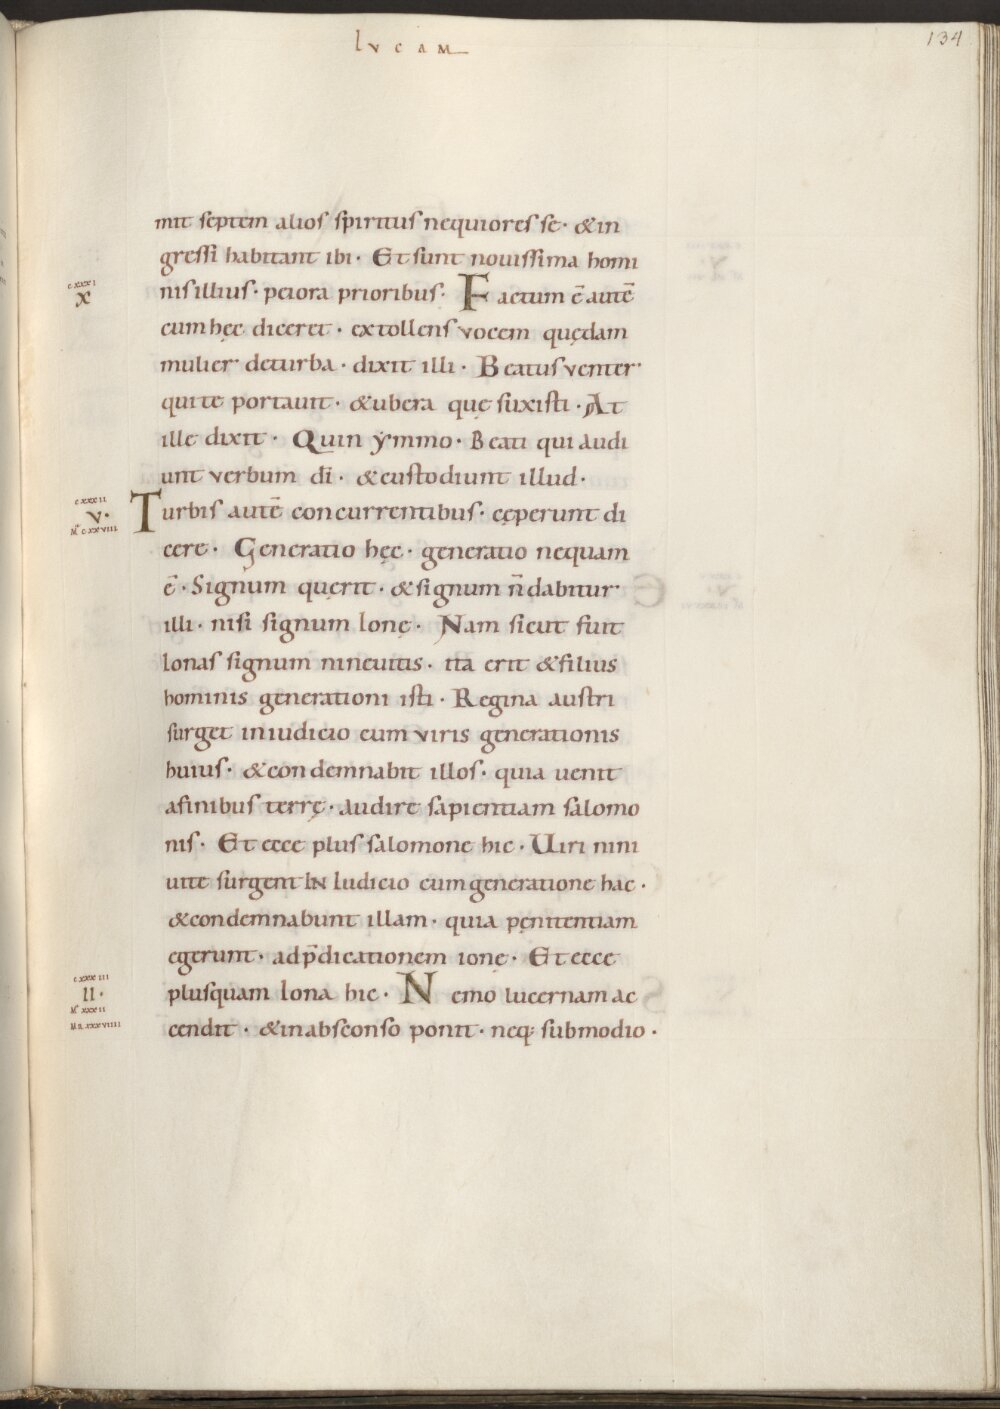 lvcam
134
mit septem alios spiritus nequiores se · & in
gressi habitant ibi · Et sunt nouissima homi
nis illius · peiora prioribus · Factum ē autē
cum hęc diceret · extollens vocem quędam
mulier de turba · dixit illi · Beatus venter
qui te portauit · & ubera quę suxisti · At
ille dixit · Quin ẏmmo · Beati qui audi
unt verbum dī · & custodiunt illud ·
Turbis autē concurrentibus · cęperunt di
cere · Generatio hęc · generatio nequam
ē · Signum quęrit · & signum n̄ dabitur
illi · nisi signum Ionę · Nam sicut fuit
Ionas signum nineuitis · ita erit & filius
hominis generationi isti · Regina austri
surget in iudicio cum viris generationis
huius · & condemnabit illos · quia uenit
a finibus terrę · audire sapientiam salomo
nis · Et ecce plus salomone hic · Uiri nini
uite surgent IN Iudicio cum generatione hac ·
& condemnabunt illam · quia pęnitentiam
egerunt · ad p̄dicationem ionę · Et ecce
plusquam Iona hic · Nemo lucernam ac
cendit · & in absconso ponit · neq; sub modio ·
cxxxi
x
cxxxii
v ·
Mt cxxviii
cxxxiii
II ·
Mt xxxii
MR xxxviiii